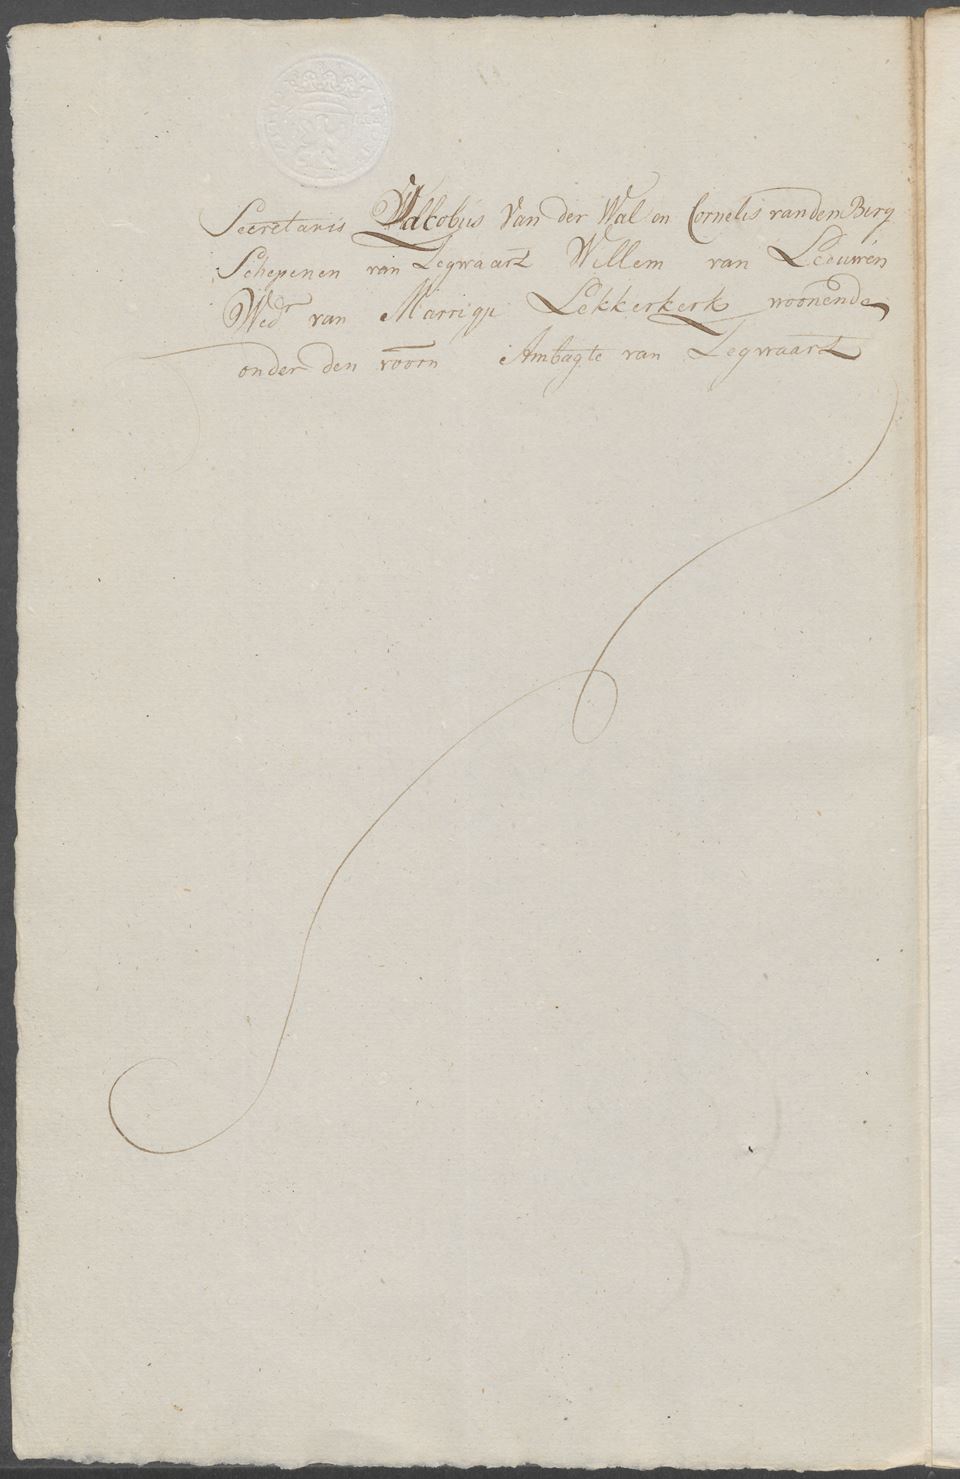 Secretaris Jakobus Van der Wal en Cornelis van den Berg
Schepenen van Zegwaart Willem van Leeuwen
Wed.r van Marrigje Lekkerkerk woonende
onder den voorn Ambagte van Zegwaart